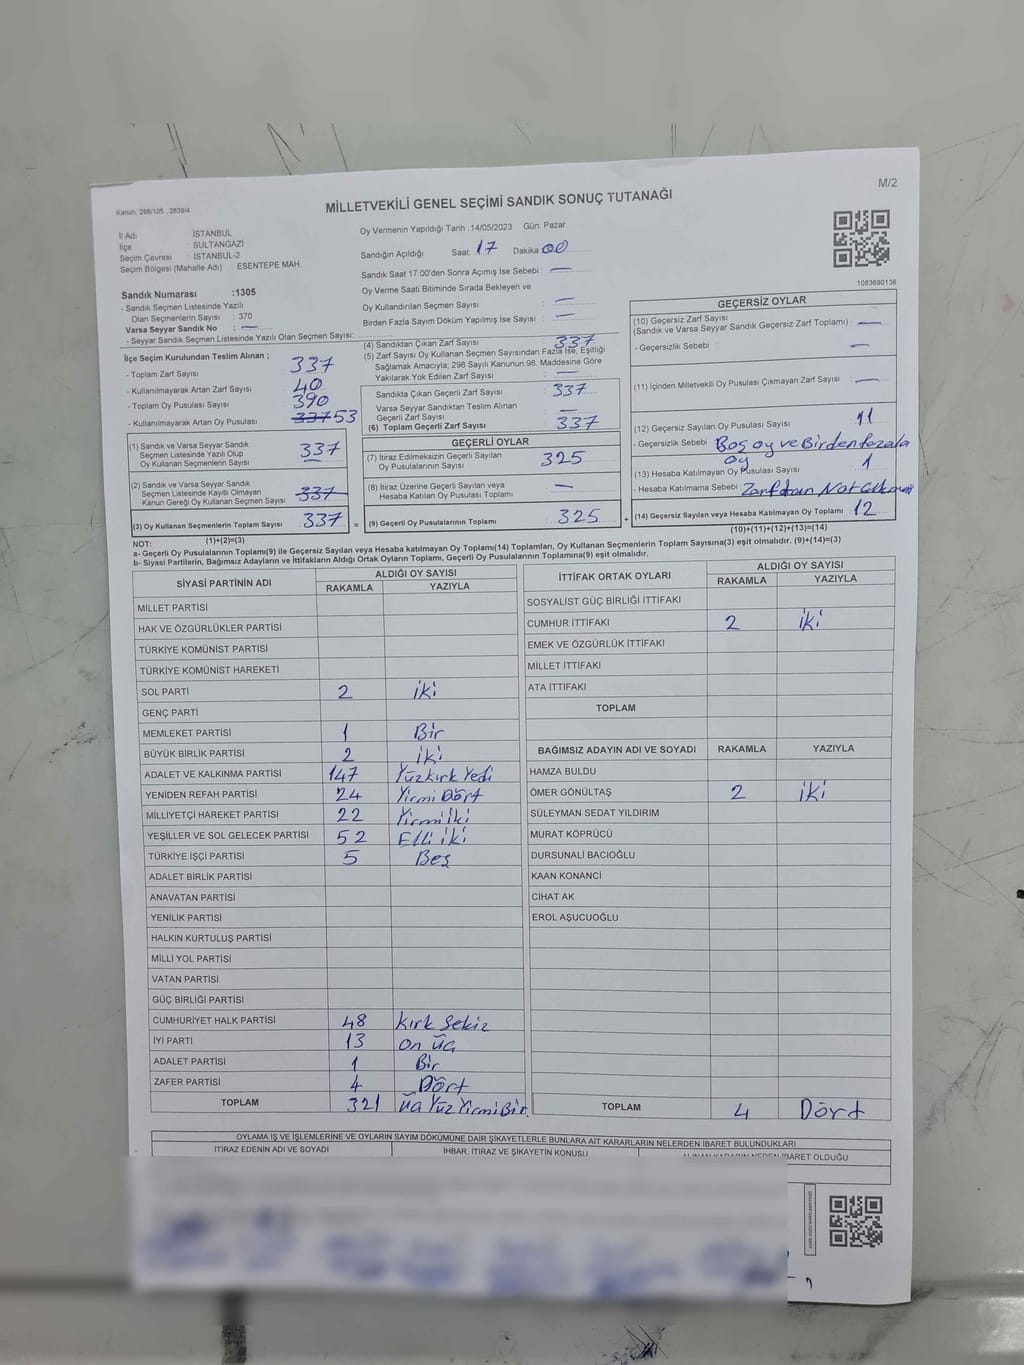 M/2
Kanun: 298/105 , 2839/4
MİLLETVEKİLİ GENEL SEÇİMİ SANDIK SONUÇ TUTANAĞI
İl Adı : İSTANBUL
İlçe : SULTANGAZİ
Seçim Çevresi : İSTANBUL-2
Seçim Bölgesi (Mahalle Adı) : ESENTEPE MAH.
Oy Vermenin Yapıldığı Tarih :14/05/2023 Gün: Pazar
Sandığın Açıldığı Saat: 17 Dakika 00
Sandık Saat 17:00'den Sonra Açımış İse Sebebi : —
Oy Verme Saati Bitiminde Sırada Bekleyen ve
Oy Kullandırılan Seçmen Sayısı : —
Birden Fazla Sayım Döküm Yapılmış İse Sayısı : —
1083690136
Sandık Numarası :1305
- Sandık Seçmen Listesinde Yazılı
Olan Seçmenlerin Sayısı : 370
Varsa Seyyar Sandık No : —
- Seyyar Sandık Seçmen Listesinde Yazılı Olan Seçmen Sayısı:
İlçe Seçim Kurulundan Teslim Alınan ;
- Toplam Zarf Sayısı : 337
- Kullanılmayarak Artan Zarf Sayısı : 40
- Toplam Oy Pusulası Sayısı : 390
- Kullanılmayarak Artan Oy Pusulası : 337 53
(1) Sandık ve Varsa Seyyar Sandık
Seçmen Listesinde Yazılı Olup
Oy Kullanan Seçmenlerin Sayısı : 337
(2) Sandık ve Varsa Seyyar Sandık
Seçmen Listesinde Kayıtlı Olmayan
Kanun Gereği Oy Kullanan Seçmen Sayısı : 337
(3) Oy Kullanan Seçmenlerin Toplam Sayısı : 337 =
(1)+(2)=(3)
(4) Sandıktan Çıkan Zarf Sayısı : 337
(5) Zarf Sayısı Oy Kullanan Seçmen Sayısından Fazla İse, Eşitliği
Sağlamak Amacıyla; 298 Sayılı Kanunun 98. Maddesine Göre
Yakılarak Yok Edilen Zarf Sayısı : —
Sandıkta Çıkan Geçerli Zarf Sayısı : 337
Varsa Seyyar Sandıktan Teslim Alınan
Geçerli Zarf Sayısı : —
(6) Toplam Geçerli Zarf Sayısı : 337
GEÇERLİ OYLAR
(7) İtiraz Edilmeksizin Geçerli Sayılan
Oy Pusulalarının Sayısı : 325
(8) İtiraz Üzerine Geçerli Sayılan veya
Hesaba Katılan Oy Pusulası Toplamı : —
(9) Geçerli Oy Pusulalarının Toplamı : 325 +
GEÇERSİZ OYLAR
(10) Geçersiz Zarf Sayısı
(Sandık ve Varsa Seyyar Sandık Geçersiz Zarf Toplamı) : —
- Geçersizlik Sebebi : —
(11) İçinden Milletvekili Oy Pusulası Çıkmayan Zarf Sayısı : —
(12) Geçersiz Sayılan Oy Pusulası Sayısı : 11
- Geçersizlik Sebebi : Boş oy ve Birden fazla
oy
(13) Hesaba Katılmayan Oy Pusulası Sayısı : 1
- Hesaba Katılmama Sebebi : Zarftan Not
(14) Geçersiz Sayılan veya Hesaba Katılmayan Oy Toplamı : 12
(10)+(11)+(12)+(13)=(14)
NOT:
a- Geçerli Oy Pusulalarının Toplamı(9) ile Geçersiz Sayılan veya Hesaba katılmayan Oy Toplamı(14) Toplamları, Oy Kullanan Seçmenlerin Toplam Sayısına(3) eşit olmalıdır. (9)+(14)=(3)
b- Siyasi Partilerin, Bağımsız Adayların ve İttifakların Aldığı Ortak Oyların Toplamı, Geçerli Oy Pusulalarının Toplamına(9) eşit olmalıdır.
SİYASİ PARTİNİN ADI ALDIĞI OY SAYISI
RAKAMLA YAZIYLA
MİLLET PARTİSİ
HAK VE ÖZGÜRLÜKLER PARTİSİ
TÜRKİYE KOMÜNİST PARTİSİ
TÜRKİYE KOMÜNİST HAREKETİ
SOL PARTİ 2 iki
GENÇ PARTİ
MEMLEKET PARTİSİ 1 Bir
BÜYÜK BİRLİK PARTİSİ 2 iki
ADALET VE KALKINMA PARTİSİ 147 Yüzkırk Yedi
YENİDEN REFAH PARTİSİ 24 Yirmi Dört
MİLLİYETÇİ HAREKET PARTİSİ 22 Yirmi İki
YEŞİLLER VE SOL GELECEK PARTİSİ 52 Elli iki
TÜRKİYE İŞÇİ PARTİSİ 5 Beş
ADALET BİRLİK PARTİSİ
ANAVATAN PARTİSİ
YENİLİK PARTİSİ
HALKIN KURTULUŞ PARTİSİ
MİLLİ YOL PARTİSİ
VATAN PARTİSİ
GÜÇ BİRLİĞİ PARTİSİ
CUMHURİYET HALK PARTİSİ 48 Kırk Sekiz
İYİ PARTİ 13 On üç
ADALET PARTİSİ 1 Bir
ZAFER PARTİSİ 4 Dört
TOPLAM 321 üç Yüz Yirmi Bir.
İTTİFAK ORTAK OYLARI ALDIĞI OY SAYISI
RAKAMLA YAZIYLA
SOSYALİST GÜÇ BİRLİĞİ İTTİFAKI
CUMHUR İTTİFAKI 2 iki
EMEK VE ÖZGÜRLÜK İTTİFAKI
MİLLET İTTİFAKI
ATA İTTİFAKI
TOPLAM
BAĞIMSIZ ADAYIN ADI VE SOYADI RAKAMLA YAZIYLA
HAMZA BULDU
ÖMER GÖNÜLTAŞ 2 iki
SÜLEYMAN SEDAT YILDIRIM
MURAT KÖPRÜCÜ
DURSUNALİ BACIOĞLU
KAAN KONANCİ
CİHAT AK
EROL AŞUCUOĞLU
TOPLAM 4 Dört
OYLAMA İŞ VE İŞLEMLERİNE VE OYLARIN SAYIM DÖKÜMÜNE DAİR ŞİKAYETLERLE BUNLARA AİT KARARLARIN NELERDEN İBARET BULUNDUKLARI
İTİRAZ EDENİN ADI VE SOYADI İHBAR, İTİRAZ VE ŞİKAYETİN KONUSU ALINAN KARARIN NEDEN İBARET OLDUĞU